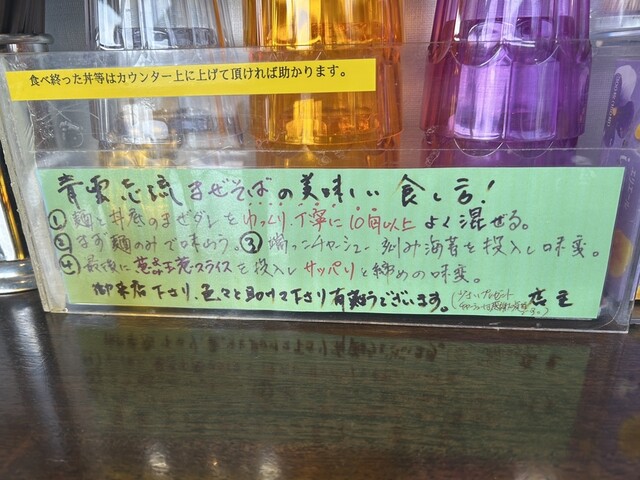 食べ終った丼等はカウンター上に上げて頂ければ助かります。
青雲志流 まぜそばの美味しい 食し方!
①麺と丼底のまぜダレをゆっくり、丁寧に10回以上よく混ぜる。
②まず麺のみで味わう。③端っこチャーシュー、刻み海苔を投入し味変。
④最後に スライスを投入しサッパリと締めの味変。
御来店下さり、色々と助けて下さり有難うございます。 店主